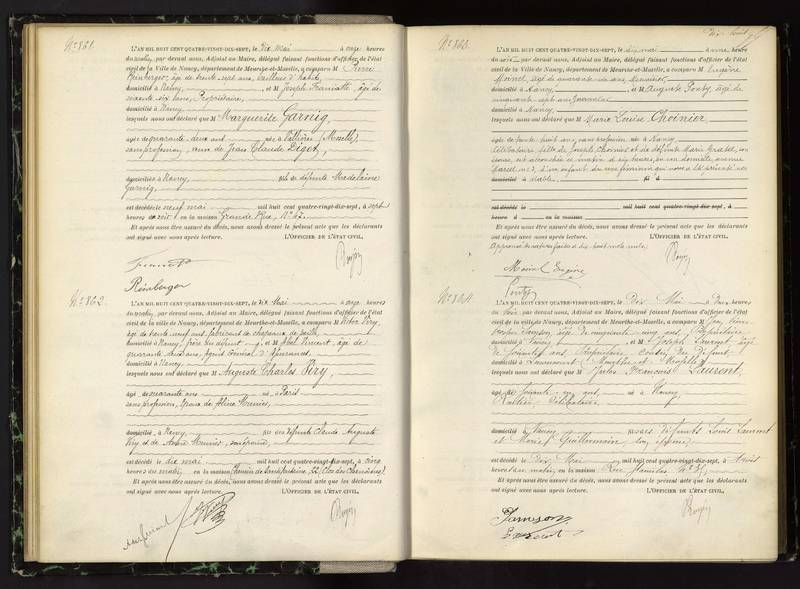 N° 861.
L'AN MIL HUIT CENT QUATRE-VINGT-DIX-SEPT, le dix mai à onze heures
du matin, par devant nous, Adjoint au Maire, délégué faisant fonctions d'officier de l'état
civil de la Ville de Nancy, département de Meurthe-et-Moselle, a comparu M Pierre
Reinberger, âgé de trente sept ans, tailleur d'habits,
domicilié à Nancy, et M Joseph âgé de
soixante six ans, Propriétaire,
domicilié à Nancy
lesquels nous ont déclaré que M Marguerite Garnig,
âgée de quarante deux ans née à Vallières (Moselle),
sans profession, veuve de Jean Claude Diget,
domiciliée à Nancy fille de défunte Madelaine
Garnig,
est décédée le neuf mai mil huit cent quatre-vingt-dix-sept, à sept
heures du soir en la maison Grande Rue, N° 47.
Et après nous être assuré du décès, nous avons dressé le présent acte que les déclarants
ont signé avec nous après lecture. L'OFFICIER DE L'ÉTAT CIVIL,
Reinberger
N° 862.
L'AN MIL HUIT CENT QUATRE-VINGT-DIX-SEPT, le dix Mai à onze heures
du matin, par devant nous, Adjoint au Maire, délégué faisant fonctions d'officier de l'état
civil de la ville de Nancy, département de Meurthe-et-Moselle, a comparu M Victor Péry,
âgé de trente neuf ans, fabricant de chapeaux de paille,
domicilié à Nancy, frère du défunt et M Abel Vincent, âgé de
quarante deux ans, Agent Général d'Assurances
domicilié à Nancy
lesquels nous ont déclaré que M Auguste Charles Péry,
âgé de quarante ans né à Paris
sans profession, Époux de Aline Meunier,
domicilié à Nancy, fils des défunts Claude Auguste
Péry et de Meunier, son épouse,
est décédé le dix mai mil huit cent quatre-vingt-dix-sept, à cinq
heures du matin, en la maison Chemin de Santifontaine, 22 (Clos des Charmettes)
Et après nous être assuré du décès, nous avons dressé le présent acte que les déclarants
ont signé avec nous après lecture. L'OFFICIER DE L'ÉTAT CIVIL,
N° 863.
L'AN MIL HUIT CENT QUATRE-VINGT-DIX-SEPT, le dix mai à une heure
du soir par devant nous, Adjoint au Maire, délégué faisant fonctions d'officier de l'état
civil de la Ville de Nancy, département de Meurthe-et-Moselle, a comparu M Eugène
Moinel, âgé de quarante un ans, Menuisier
domicilié à Nancy, et M Auguste Ponty, âgé de
cinquante sept ans Journalier
domicilié à Nancy
lesquels nous ont déclaré que M Marie Louise Choinier,
âgée de trente huit ans, sans profession née à Nancy
célibataire, fille de Joseph Choinier et de défunte Marie Gratel, son
épouse, est accouchée ce matin, à six heures, en son domicile, avenue
n° 3, d'un enfant du sexe féminin qui nous a été présenté
domicilié à
est décédé le mil huit cent quatre-vingt-dix-sept, à
heure d en la maison
Et après nous être assuré du décès, nous avons dressé le présent acte que les déclarants
ont signé avec nous après lecture. L'OFFICIER DE L'ÉTAT CIVIL,
Moinel Eugène
Ponty
N° 864
L'AN MIL HUIT CENT QUATRE-VINGT-DIX-SEPT, le Dix Mai à Deux heures
du Soir, par devant nous, Adjoint au Maire, délégué faisant fonctions d'officier de l'état
civil de la ville de Nancy, département de Meurthe-et-Moselle, a comparu M Jean
Jameson, âgé de cinquante cinq ans, Propriétaire
domicilié à Nancy, et M Joseph Laurent, âgé
de soixante ans Propriétaire, cousin du défunt
domicilié à Meurthe et Moselle
lesquels nous ont déclaré que M Jules François Laurent,
âgé de soixante un ans, né à Nancy
Rentier, Célibataire
domicilié à Nancy fils des défunts Louis Laurent
et Marie Guillermine, son épouse
est décédé le Dix Mai mil huit cent quatre-vingt-dix-sept, à trois
heures du matin, en la maison Rue
Et après nous être assuré du décès, nous avons dressé le présent acte que les déclarants
ont signé avec nous après lecture. L'OFFICIER DE L'ÉTAT CIVIL,
Jameson
Laurent